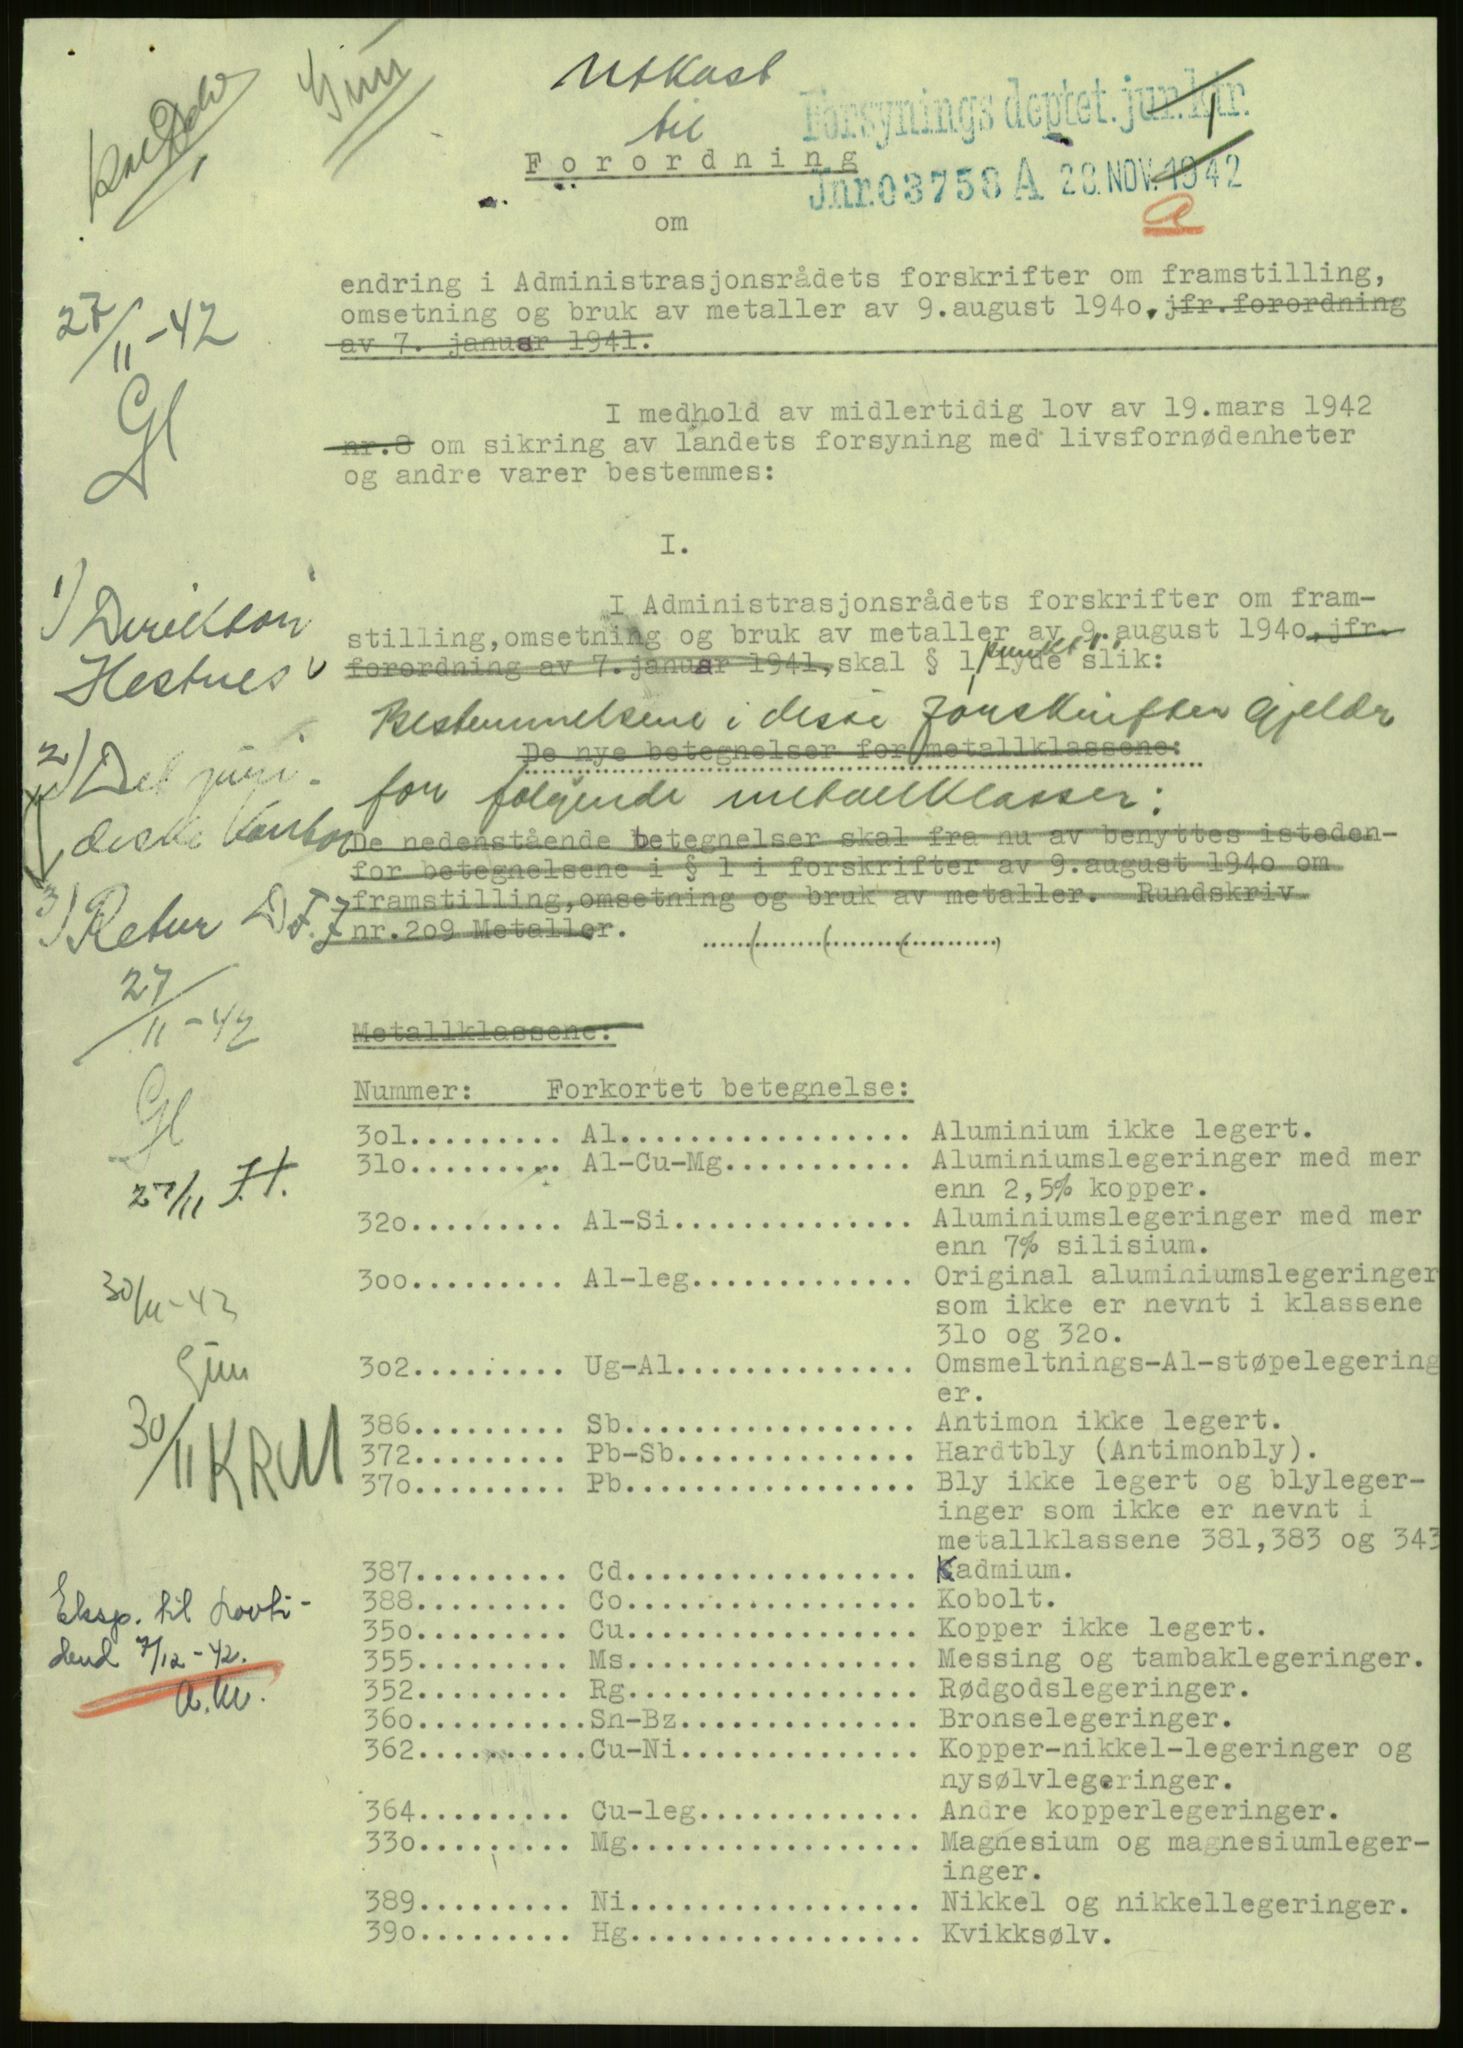 Utkast
til
Forsyningsdeptet. jur. ktr.
Jnr. 03758 A 28. NOV. 1942
a
Forordning
om
endring i Administrasjonsrådets forskrifter om framstilling,
omsetning og bruk av metaller av 9.august 194o, jfr.forordning
av 7. januar 1941.
27/11-42
Gl
I medhold av midlertidig lov av 19.mars 1942
nr.8 om sikring av landets forsyning med livsfornødenheter
og andre varer bestemmes:
I.
I Administrasjonsrådets forskrifter om fram-
stilling,omsetning og bruk av metaller av 9.august 194o, jfr.
forordning av 7.januar 1941, skal § 1, punkt 1, lyde slik:
Bestemmelsene i disse forskrifter gjelder
De nye betegnelser for metallklassene:
for følgende metallklasser:
De nedenstående betegnelser skal fra nu av benyttes isteden-
for betegnelsene i § 1 i forskrifter av 9.august 194o om
framstilling,omsetning og bruk av metaller. Rundskriv
nr.2o9 Metaller.
1) Direktør
Hestnes
2) Det juri-
diske kontor
3) Retur D.F.J
27/11-42
Gl
27/11 J.H.
30/11-42
30/11 KRM
Eksp. til Lovti-
dend 7/12-42.
A.M.
Metallklassene:
Nummer: Forkortet betegnelse:
3o1......... Al................. Aluminium ikke legert.
31o......... Al-Cu-Mg........... Aluminiumslegeringer med mer
enn 2,5% kopper.
32o......... Al-Si.............. Aluminiumslegeringer med mer
enn 7% silisium.
3oo......... Al-leg............. Original aluminiumslegeringer
som ikke er nevnt i klassene
31o og 32o.
3o2......... Ug-Al.............. Omsmeltnings-Al-støpelegering
er.
386......... Sb................. Antimon ikke legert.
372......... Pb-Sb.............. Hardtbly (Antimonbly).
37o......... Pb................. Bly ikke legert og blyleger-
inger som ikke er nevnt i
metallklassene 381,383 og 343
387......... Cd................. Kadmium.
388......... Co................. Kobolt.
35o......... Cu................. Kopper ikke legert.
355......... Ms................. Messing og tambaklegeringer.
352......... Rg................. Rødgodslegeringer.
36o..........Sn-Bz.............. Bronselegeringer.
362..........Cu-Ni.............. Kopper-nikkel-legeringer og
nysølvlegeringer.
364......... Cu-leg............. Andre kopperlegeringer.
33o......... Mg................. Magnesium og magnesiumleger-
inger.
389......... Ni................. Nikkel og nikkellegeringer.
39o......... Hg................. Kvikksølv.